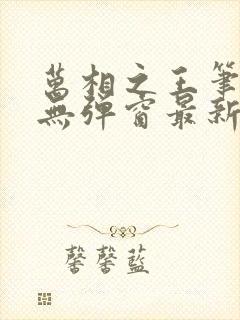 萬相之王筆
無彈窗最新
馨馨藍